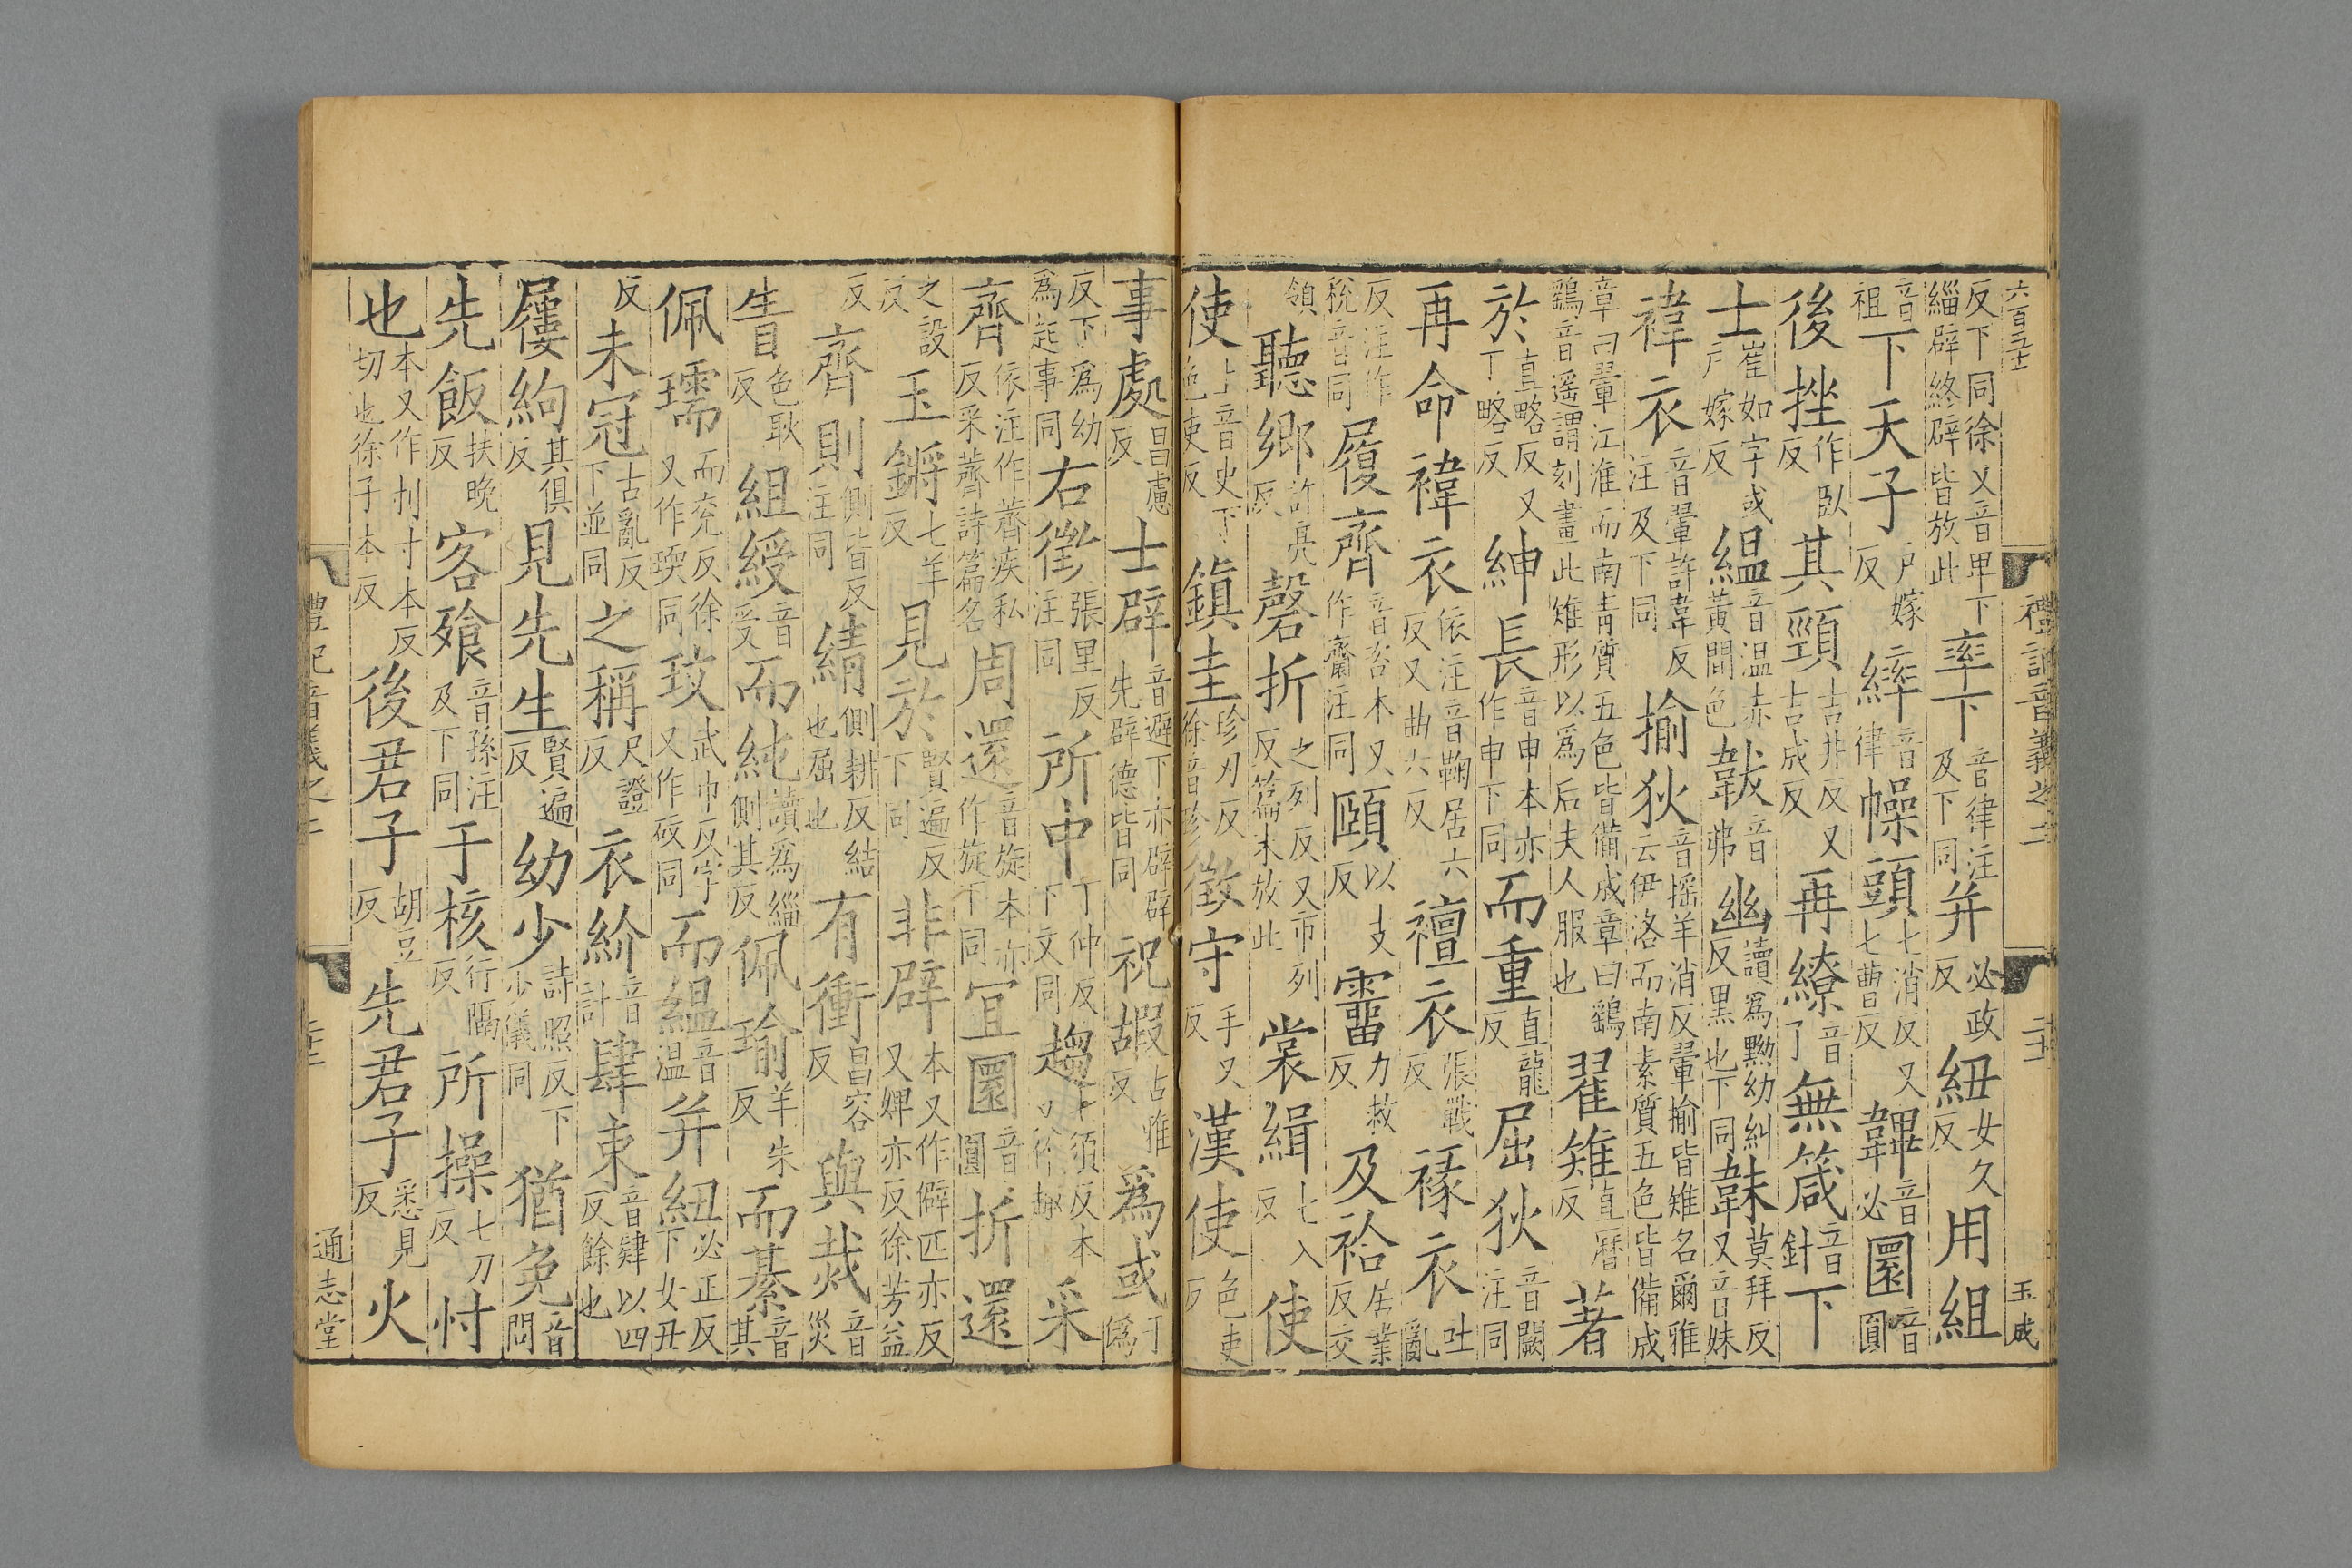 禮記音義之二
玉成
反下同徐又音卑下緇辟終辟皆放此率下音律注及下同并必政反紐女久反用組
音祖下天子戶嫁反繂音律幧頭七消反又七曹反韠音必圜音圓
後挫作臥反其頸吉井反又吉成反再繚音了無箴音針下
士崔如字或戶嫁反縕音温赤黃間色韍音弗幽讀爲黝幼糾反黑也下同韎莫拜反又音妹
褘衣音翬許韋反注及下同揄狄音搖羊消反翬揄皆雉名爾雅云伊洛而南素質五色皆備成
章曰翬江淮而南青質五色皆備成章曰鷂鷂音遥謂刻畫此雉形以爲后夫人服也翟雉直曆反著
於直略反又丁略反紳長音申本亦作申下同而重直龍反屈狄音闕注同
再命褘衣依注音鞠居六反又曲六反襢衣張戰反褖衣吐亂
反注作稅音同履齊音咨本又作齋注同頤以支反霤力救反及袷居業反交
領聽鄉許亮反磬折之列反又市列反篇末放此裳緝七入反使
使上音史下色吏反鎮圭珍刃反徐音珍徵守手又反漢使色吏反
事處昌慮反士辟音避下亦辟辟先辟德皆同祝嘏古雅反爲或于僞
反下爲幼爲起事同右徵張里反注同所中丁仲反下文同趨七須反本又作趣采
齊依注作薺疾私反采薺詩篇名周還音旋本亦作旋下同宜圜音圓折還
之設反玉鏘七羊反見於賢遍反下同非辟本又作僻匹亦反又婢亦反徐芳益
反齊則側皆反注同綪側耕反結也屈也有衝昌容反與烖音災
眚色耿反組綬音受而純讀爲緇側其反佩瑜羊朱反而綦音其
佩瓀而兖反徐又作瑌同玟武巾反字又作砇同而縕音温并紐必正反下女丑
反未冠古亂反下並同之稱尺證反衣紟音計肆束音肄以四反餘也
屨絇其俱反見先生賢遍反幼少詩照反下少儀同猶免音問
先飯扶晚反客飱音孫注及下同于核行隔反所操七刀反忖
也本又作刌寸本反切也徐子本反後君子胡豆反先君子悉見反火
禮記音義之二
通志堂